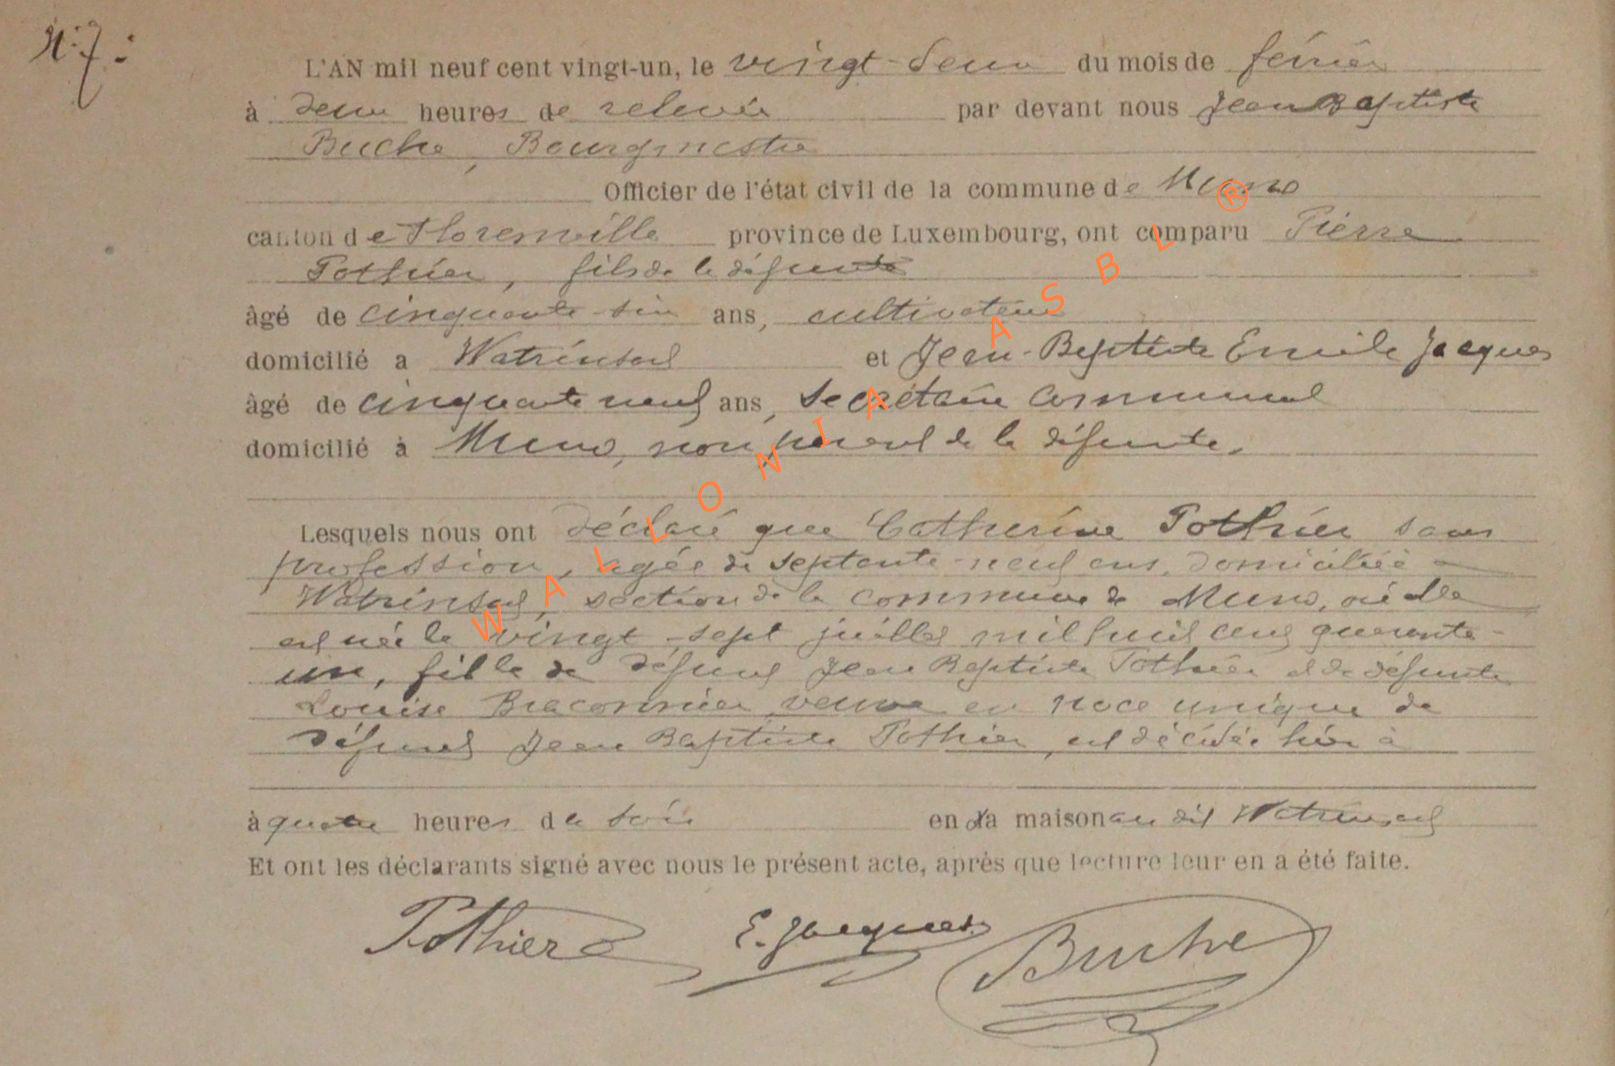 N° 7.
L'AN mil neuf cent vingt-un, le vingt-deux du mois de février
à deux heures de relevée par devant nous Jean Baptiste
Buche, Bourgmestre
Officier de l'état civil de la commune de Muno
canton de Florenville province de Luxembourg, ont comparu Pierre
Pothier, fils de la défunte
âgé de cinquante-six ans, cultivateur
domicilié a Watrinsart et Jean-Baptiste Emile Jacques
âgé de cinquante neuf ans, secrétaire communal
domicilié à Muno, non parent de la défunte.
Lesquels nous ont déclaré que Catherine Pothier sans
profession, agée de septante-neuf ans, domiciliée à
Watrinsart, section de la commune de Muno, où elle
est née le vingt-sept juillet mil huit cent quarante-
un, fille de défunt Jean Baptiste Pothier et de défunte
Louise Braconnier veuve en noce unique de
défunt Jean Baptiste Pothier, est décédée hier à
à quatre heures du soir en sa maison au dit Watrinsart
Et ont les déclarants signé avec nous le présent acte, après que lecture leur en a été faite.
Pothier E. Jacques Buche
WALLONIA ASBL ®